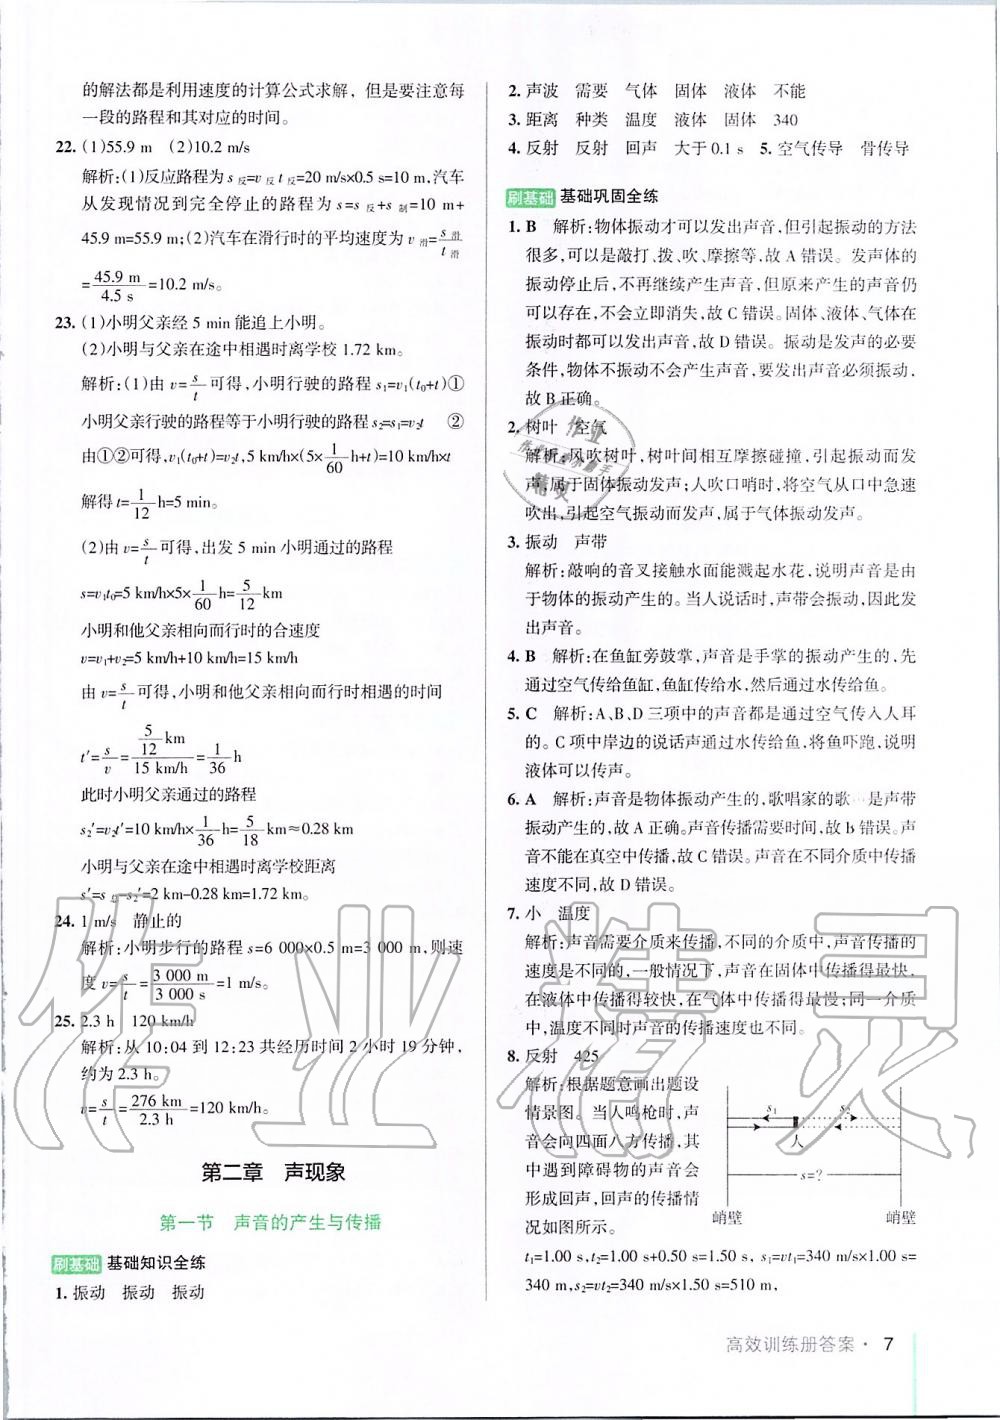 的解法都是利用速度的计算公式求解，但是要注意每
一段的路程和其对应的时间。
22. (1)55.9 m　(2)10.2 m/s
解析：(1)反应路程为 s反=v反t反=20 m/s×0.5 s=10 m，汽车
从发现情况到完全停止的路程为 s=s反+s制=10 m+
45.9 m=55.9 m；(2)汽车在滑行时的平均速度为 v滑=s滑/t滑
=45.9 m/4.5 s=10.2 m/s。
23. (1)小明父亲经 5 min能追上小明。
(2)小明与父亲在途中相遇时离学校 1.72 km。
解析：(1)由 v=s/t可得，小明行驶的路程 s1=v1(t0+t)①
小明父亲行驶的路程等于小明行驶的路程 s2=s1=v2t　②
由①②可得，v1(t0+t)=v2t，5 km/h×(5×1/60 h+t)=10 km/h×t
解得 t=1/12 h=5 min。
(2)由 v=s/t可得，出发 5 min 小明通过的路程
s=v1t0=5 km/h×5×1/60 h=5/12 km
小明和他父亲相向而行时的合速度
v=v1+v2=5 km/h+10 km/h=15 km/h
由 v=s/t可得，小明和他父亲相向而行时相遇的时间
t′=s/v=5/12 km/15 km/h=1/36 h
此时小明父亲通过的路程
s2′=v2t′=10 km/h×1/36 h=5/18 km≈0.28 km
小明与父亲在途中相遇时离学校距离
s′=s总-s2′=2 km-0.28 km=1.72 km。
24. 1 m/s　静止的
解析：小明步行的路程 s=6 000×0.5 m=3 000 m，则速
度 v=s/t=3 000 m/3 000 s=1 m/s。
25. 2.3 h　120 km/h
解析：从 10:04 到 12:23 共经历时间 2 小时 19 分钟，
约为 2.3 h。
v=s/t=276 km/2.3 h=120 km/h。
第二章　声现象
第一节　声音的产生与传播
刷基础 基础知识全练
1. 振动　振动　振动
2. 声波　需要　气体　固体　液体　不能
3. 距离　种类　温度　液体　固体　340
4. 反射　反射　回声　大于0.1 s　5. 空气传导　骨传导
刷基础 基础巩固全练
1. B　解析：物体振动才可以发出声音，但引起振动的方法
很多，可以是敲打、拨、吹、摩擦等，故 A 错误。发声体的
振动停止后，不再继续产生声音，但原来产生的声音仍
可以存在，不会立即消失，故 C 错误。固体、液体、气体在
振动时都可以发出声音，故 D 错误。振动是发声的必要
条件，物体不振动不会产生声音，要发出声音必须振动，
故 B 正确。
2. 树叶　空气
解析：风吹树叶，树叶间相互摩擦碰撞，引起振动而发
声，属于固体振动发声；人吹口哨时，将空气从口中急速
吹出，引起空气振动而发声，属于气体振动发声。
3. 振动　声带
解析：敲响的音叉接触水面而能溅起水花，说明声音是由
于物体的振动产生的。当人说话时，声带会振动，因此发
出声音。
4. B　解析：在鱼缸旁鼓掌，声音是手掌的振动产生的，先
通过空气传给鱼缸，鱼缸传给水，然后通过水传给鱼。
5. C　解析：A、B、D 三项中的声音都是通过空气传入人耳
的。C 项中岸边的说话声通过水传给鱼，将鱼吓跑，说明
液体可以传声。
6. A　解析：声音是物体振动产生的，歌唱家的歌 是声带
振动产生的，故 A 正确。声音传播需要时间，故 b 错误。声
音不能在真空中传播，故 C 错误。声音在不同介质中传播
速度不同，故 D 错误。
7. 小　温度
解析：声音需要介质来传播，不同的介质中，声音传播的
速度是不同的，一般情况下，声音在固体中传播得最快，
在液体中传播得较快，在气体中传播得最慢；同一介质
中，温度不同时声音的传播速度也不同。
8. 反射　425
解析：根据题意画出题设
情景图。当人鸣枪时，声
音会向四面八方传播，其
中遇到障碍物的声音会
形成回声，回声的传播情
况如图所示。
s1　s2
人
s=?
峭壁　峭壁
t1=1.00 s，t2=1.00 s+0.50 s=1.50 s，s1=vt1=340 m/s×1.00 s=
340 m，s2=vt2=340 m/s×1.50 s=510 m，
高效训练册答案 · 7
作业精灵